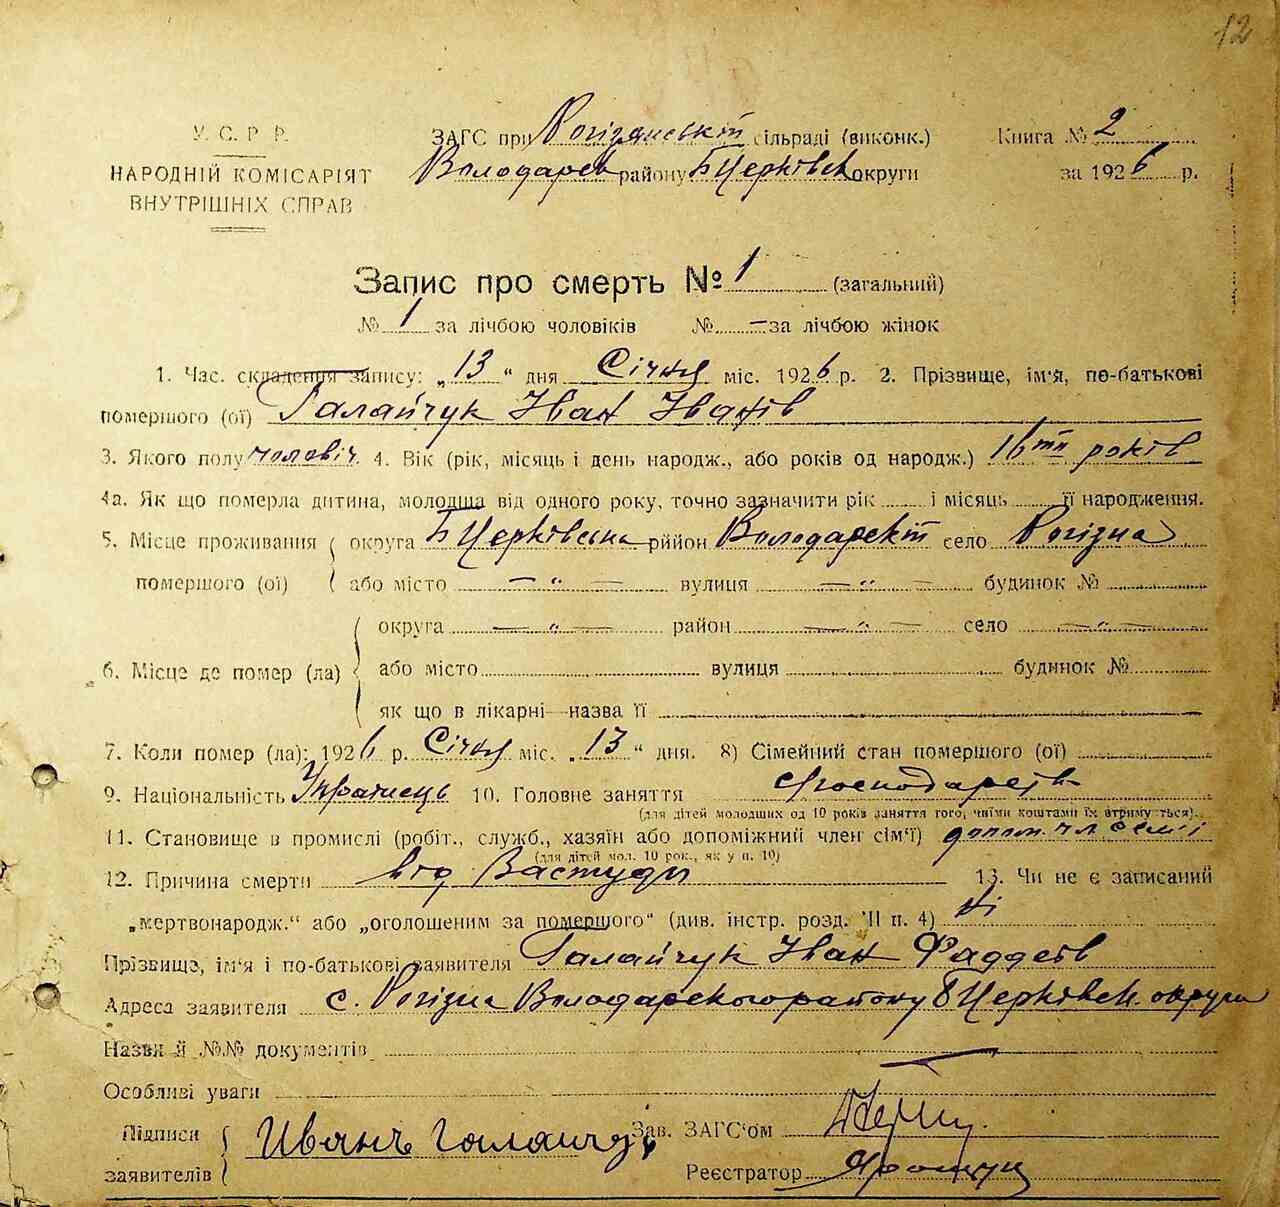 12
У. С. Р. Р.
НАРОДНІЙ КОМІСАРІЯТ
ВНУТРІШНІХ СПРАВ
ЗАГС при Рогізянській сільраді (виконк.)
Володарсь району Б Церківськ округи
Книга № 2
за 1926 р.
Запис про смерть № 1 (загальний)
№ 1 за лічбою чоловіків № — за лічбою жінок
1. Час складення запису: „13" дня Січня міс. 1926 р. 2. Прізвище, ім'я, по-батькові
помершого (ої) Галайчук Іван Іванів
3. Якого полу чоловіч. 4. Вік (рік, місяць і день народж., або років од народж.) 16ти років
4а. Як що померла дитина, молодша від одного року, точно зазначити рік ...... і місяць ...... її народження.
5. Місце проживання помершого (ої) округа Б Церківська рийон Володарській село Рогізна
або місто — „ — вулиця — „ — будинок №
6. Місце де помер (ла) округа — „ — район — „ — село — „ —
або місто вулиця будинок №
як що в лікарні—назва її
7. Коли помер (ла): 1926 р. Січня міс. „13" дня. 8) Сімейний стан помершого (ої)
9. Національність Українець 10. Головне заняття
(для дітей молодших од 10 років заняття того, чиїми коштами їх втриму ться).
11. Становище в промислі (робіт., служб., хазяїн або допоміжний член сім'ї) допом. чл сем'ї
(для дітей мол. 10 рок., як у п. 10)
12. Причина смерти від Вастуди 13. Чи не є записаний
„мертвонародж." або „оголошеним за помершого" (див. інстр. розд. II п. 4) ні
Прізвище, ім'я і по-батькові заявителя Галайчук Іван Фаддеїв
Адреса заявителя с. Рогізна Володарського району Б Церківськ. округи
Назви й №№ документів
Особливі уваги
Підписи заявителів Иванъ Галайчу
Зав. ЗАГС'ом
Реєстратор